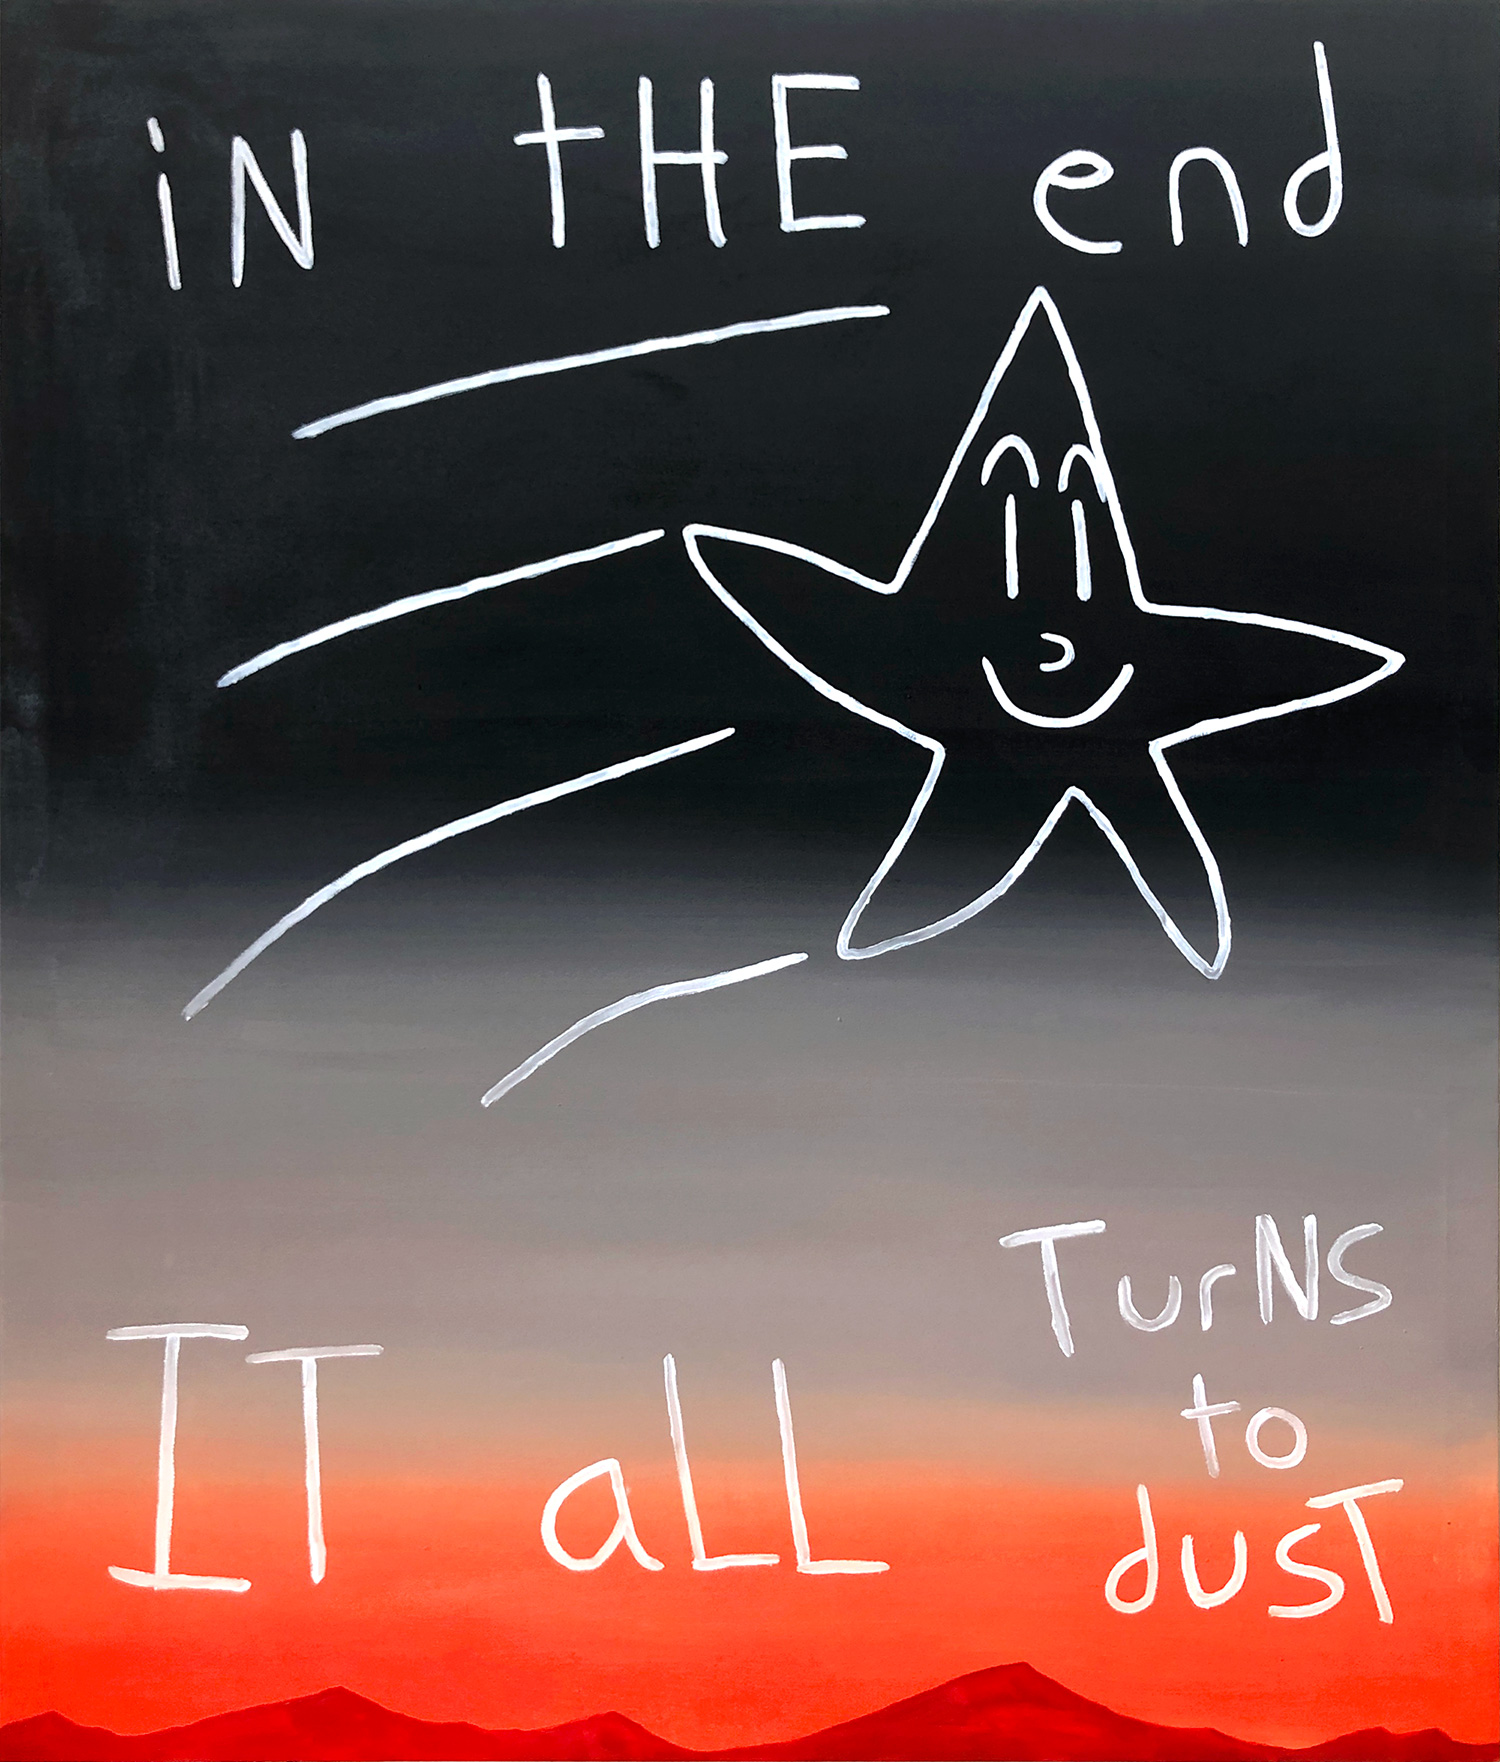 iN tHE end
IT aLL TurNS
to
dusT